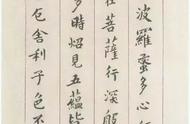 波羅蜜多心
在菩薩行深般
多時炤見五蘊皆
厄舍利子色不